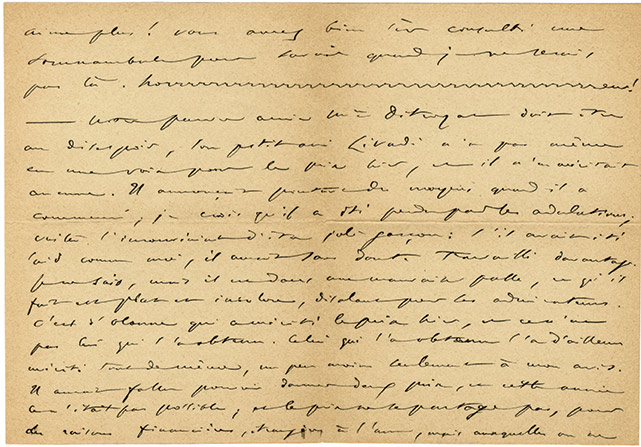 aime plus ! vous aurez bien sûr consulté une
somnambule pour savoir quand je ne serai
pas là. horrrrrrrrrrrrrrrrrrrrrrreur !
— Notre pauvre amie Mme doit être
au désespoir, son petit ami Livadi n'a pas même
eu une voix pour le prix hier, et il n'en méritait
aucune. Il annonçait pourtant des moyens quand il a
commencé, je crois qu'il a été perdu par les adulations,
c'est l'inconvénient d'être joli garçon : s'il avait été
laid comme moi, il aurait sans doute travaillé davantage.
je ne sais, mais il est dans une mauvaise passe, ce qu'il
fait est plat et , désolant pour les admirateurs.
C'est d'Olonne qui a mérité le prix hier, et ce n'est
pas lui qui l'a obtenu. Celui qui l'a obtenu l'a d'ailleurs
mérité tout de même, un peu moins seulement à mon avis.
Il aurait fallu pouvoir donner deux prix, et cette année
ce n'était pas possible, et le prix ne se partage pas, pour
des raisons financières, étrangères à l'art, mais auxquelles on ne